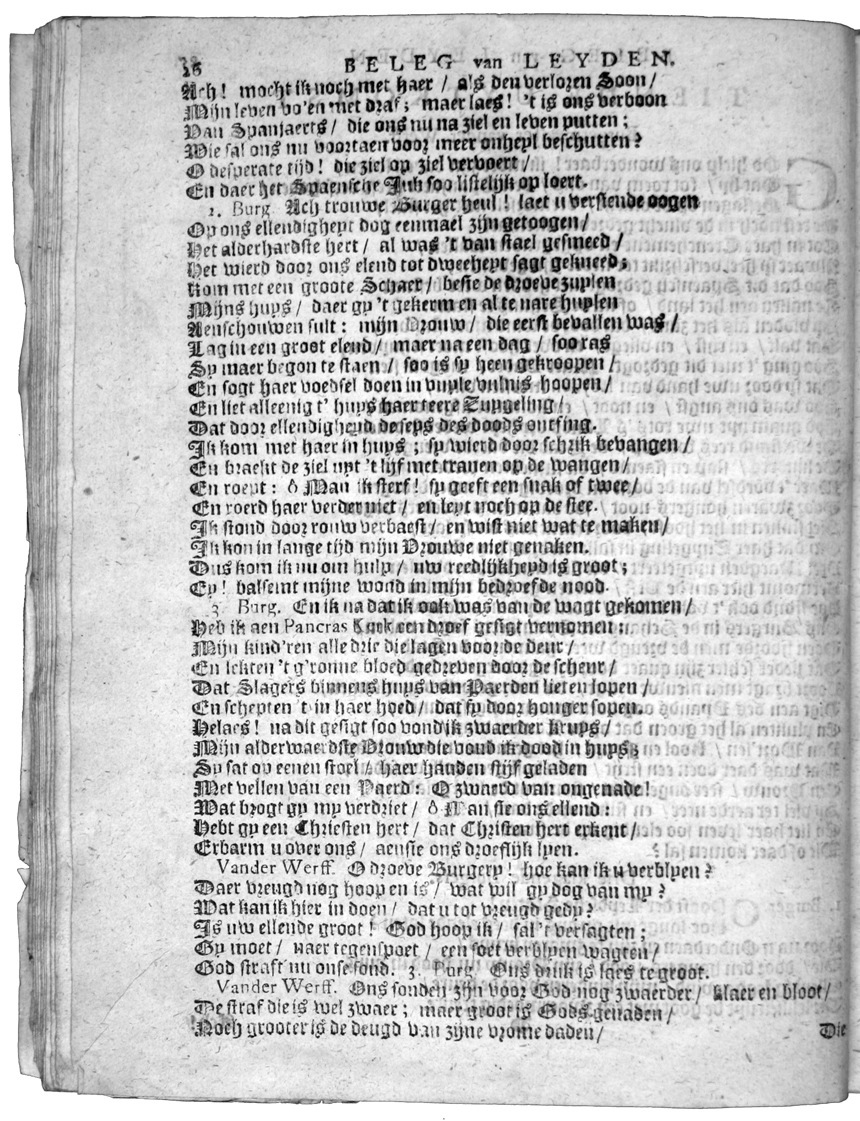 26 BELEG van LEYDEN.
Ach! mocht ik noch met haer / als den verloren Soon /
Mijn leven vo'en met draf; maer laes! 't is ons verboon
Van Spanjaerts / die ons nu na ziel en leven putten;
Wie sal ons nu voortaen voor meer onheyl beschutten?
O desperate tijd! die ziel op ziel vervoert /
En daer het Spaensche Juk soo listelijk op loert.
1. Burg. Ach trouwe Burger heul! laet u verstende oogen
Op ons ellendigheyt dog eenmael zijn getoogen /
Het alderhardste hert / al was 't van stael gesmeed /
Het wierd door ons elend tot dweeheyt sagt gekneed;
Kom met een groote Schaer / beste de droeve zuylen
Mijns huys / daer gy 't gekerm en al te nare huylen
Aenschouwen sult: mijn Vrouw / die eerst bevallen was /
Lag in een groot elend / maer na een dag / soo ras
Sy maer begon te staen / soo is sy heen gekroopen /
En sogt haer voedsel doen in vuyle vulnis hoopen /
En liet alleenig t' huys haer teere Zuygeling /
Dat door ellendigheyd de seys des doods ontfing.
Ik kom met haer in huys; sy wierd door schrik bevangen /
En braekt de ziel uyt 't lijf met tranen op de wangen /
En roept: ô Man ik sterf! sy geeft een snak of twee /
En roerd haer verder niet / en leyt noch op de stee.
Ik stond door rouw verbaest / en wist niet wat te maken /
Ik kon in lange tijd mijn Vrouwe niet genaken.
Dus kom ik nu om hulp / uw reedlijkheyd is groot;
Ey! balsemt mijne wond in mijn bedroefde nood.
3. Burg. En ik na dat ik ook was van de wagt gekomen /
Heb ik aen Pancras Kock een droef gesigt vernomen:
Mijn kind'ren alle drie die lagen voor de deur /
En lekten 't g'ronne bloed gedreven door de scheur /
Dat Slagers binnens huys van Paerden lieten lopen /
En schepten 't in haer hoed / dat sy door honger sopen.
Helaes! na dit gesigt soo vond ik zwaerder kruys /
Mijn alderwaerdste Vrouw die voud ik dood in huys;
Sy sat op eenen stoel / haer handen stijf geladen
Met vellen van een Paerd: O zwaerd van ongenade!
Wat brogt gy my verdriet / ô Man sie ons ellend:
Hebt gy een Christen hert / dat Christen hert erkent /
Erbarm u over ons / aensie ons droeflijk lyen.
Vander Werff. O droeve Burgery! hoe kan ik u verblyen?
Daer vreugd nog hoop en is / wat wil gy dog van my?
Wat kan ik hier in doen / dat u tot vreugd gedy?
Is uw ellende groot! God hoop ik / sal 't versagten;
Gy moet / naer tegenspoet / een soet verblyen wagten /
God straft nu onse sond. 3. Burg. Ons druk is laes te groot.
Vander Werff. Ons sonden zijn voor God nog zwaerder / klaer en bloot /
De straf die is wel zwaer; maer groot is Gods genaden /
Noch grooter is de deugd van zijne vrome daden /
Die